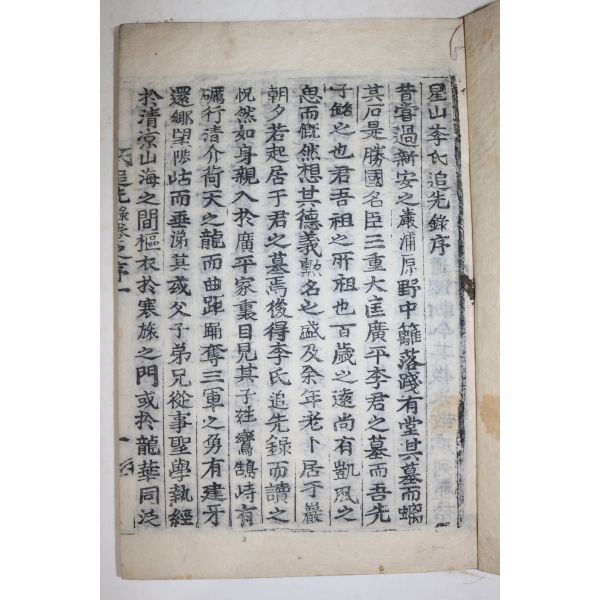 星山李氏追先錄序
昔嘗過新安之巖浦原野中籬落踐有堂其墓而蠮
其石是勝國名臣三重大匡廣平李君之墓而吾先
子銘之也君吾祖之所祖也百歲之遠尚有凱風之
思而慨然想其德義勳名之盛及余年老卜居于巖
朝夕若起居于君之墓焉後得李氏追先錄而讀之
怳然如身親入於廣平家裏目見其子姓鸞鵠峙有
礪行清介荷天之龍而曲距踊奪三軍之勇有建牙
還鄉望陟岵而垂涕其或父子弟兄從事聖學執經
於清凉山海之間樞衣於寒旅之門或於龍華同泛
氏追先錄卷之序 一